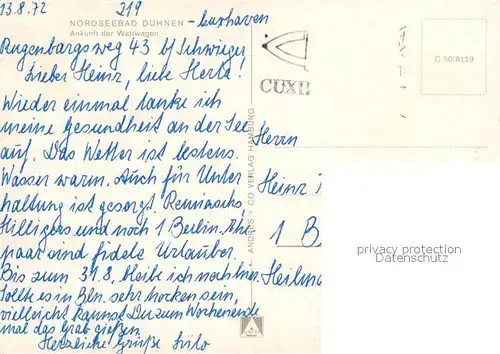 13.8.72 219
NORDSEEBAD DUHNEN - Cuxhaven
Ankunft der Wattwagen
Rugenbargsweg 43 b/ Schwieger
Lieber Heinz, liebe Herta!
Wieder einmal tanke ich
meine Gesundheit an der See
auf. Das Wetter ist bestens.
Wasser warm. Auch für Unter
haltung ist gesorgt.
Hilligers und noch 1 Berlin. Ehe
paar sind fidele Urlauber.
Bis zum 31.8. bleibe ich noch hier.
Sollte es in Bln. sehr trocken sein,
vielleicht kannst Du zum Wochenende
mal das Grab gießen.
Herzliche Grüße
ANDRES + CO VERLAG HAMBURG
CUXH
C 50/8119
Herrn
Heinz
1 B
privacy protection
Datenschutz